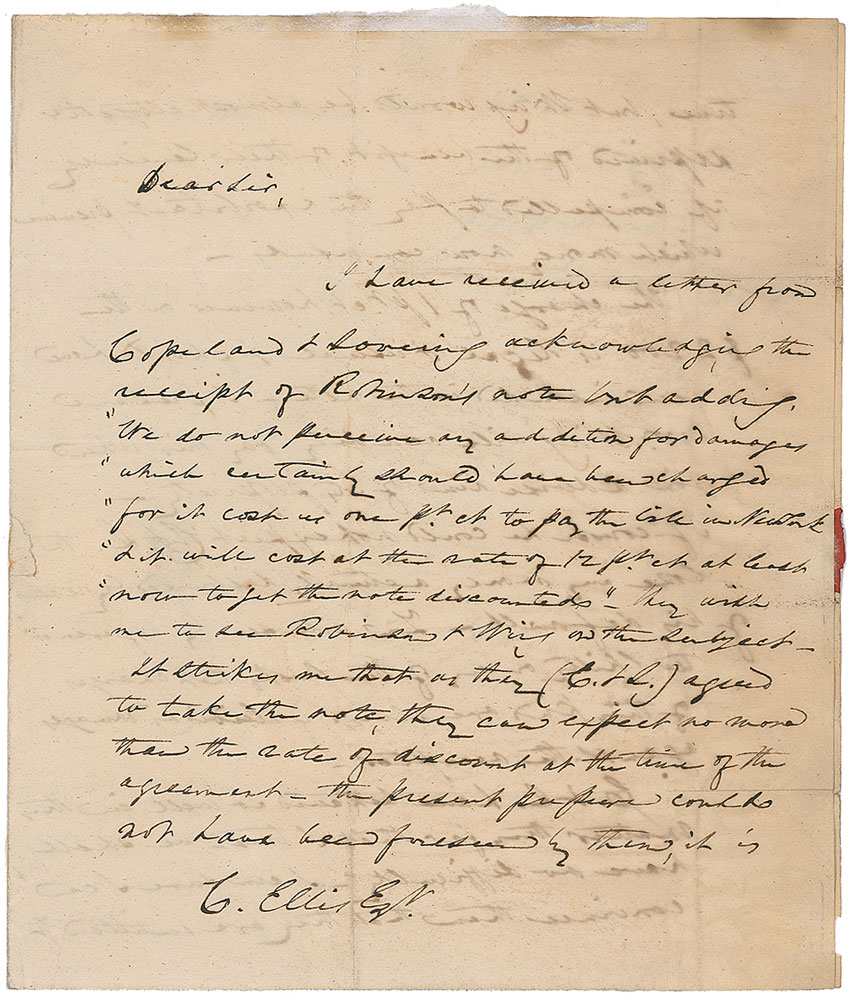 Dear Sir,
I have received a letter from
Copeland & Lovering acknowledging the
receipt of Robinson's note but adding.
"We do not perceive any addition for damages
"which certainly should have been charged
"for it cost us one pr. ct to pay the bill in New York
"& it will cost at the rate of 12 pr. ct at least
"now to get the note discounted" – they wish
me to see Robinson & Wing on the subject –
It strikes me that as they (C. & L.) agreed
to take the note, they can expect no more
than the rate of discount at the time of the
agreement – the present pressure could
not have been foreseen by them, it is
C. Ellis Esqr.